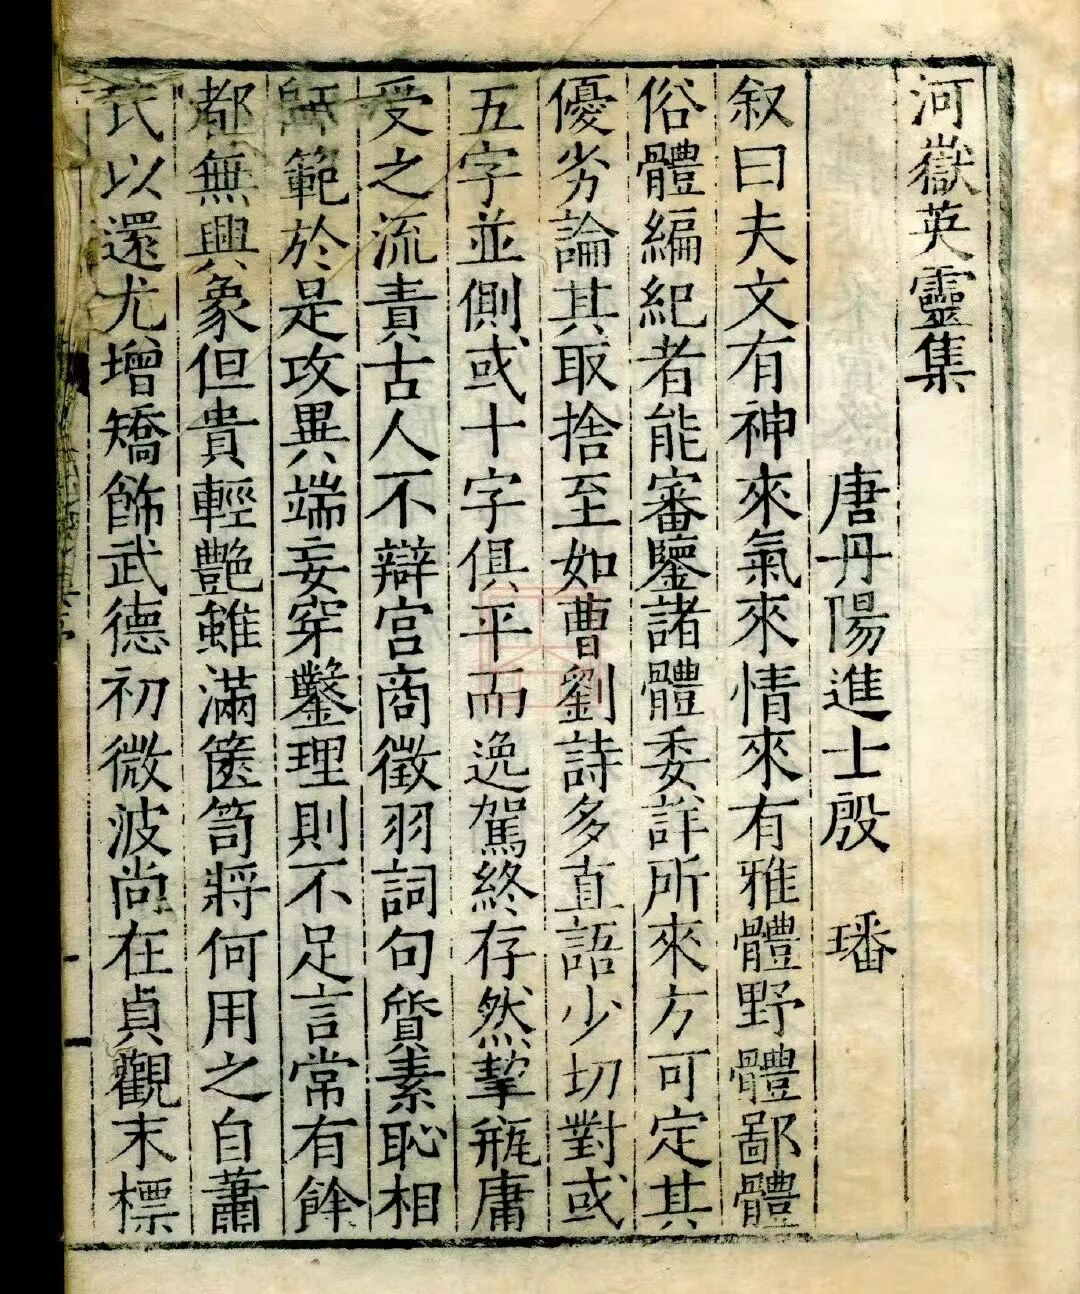 河嶽英靈集
唐丹陽進士殷　璠
叙曰夫文有神來氣來情來有雅體野體鄙體
俗體編紀者能審鑒諸體委詳所來方可定其
優劣論其取捨至如曹劉詩多直語少切對或
五字並側或十字俱平而逸駕終存然挈瓶庸
受之流責古人不辯宮商徵羽詞句質素恥相
師範於是攻異端妄穿鑿理則不足言常有餘
都無興象但貴輕艶雖滿篋笥將何用之自蕭
氏以還尤增矯飾武德初微波尚在貞觀末標